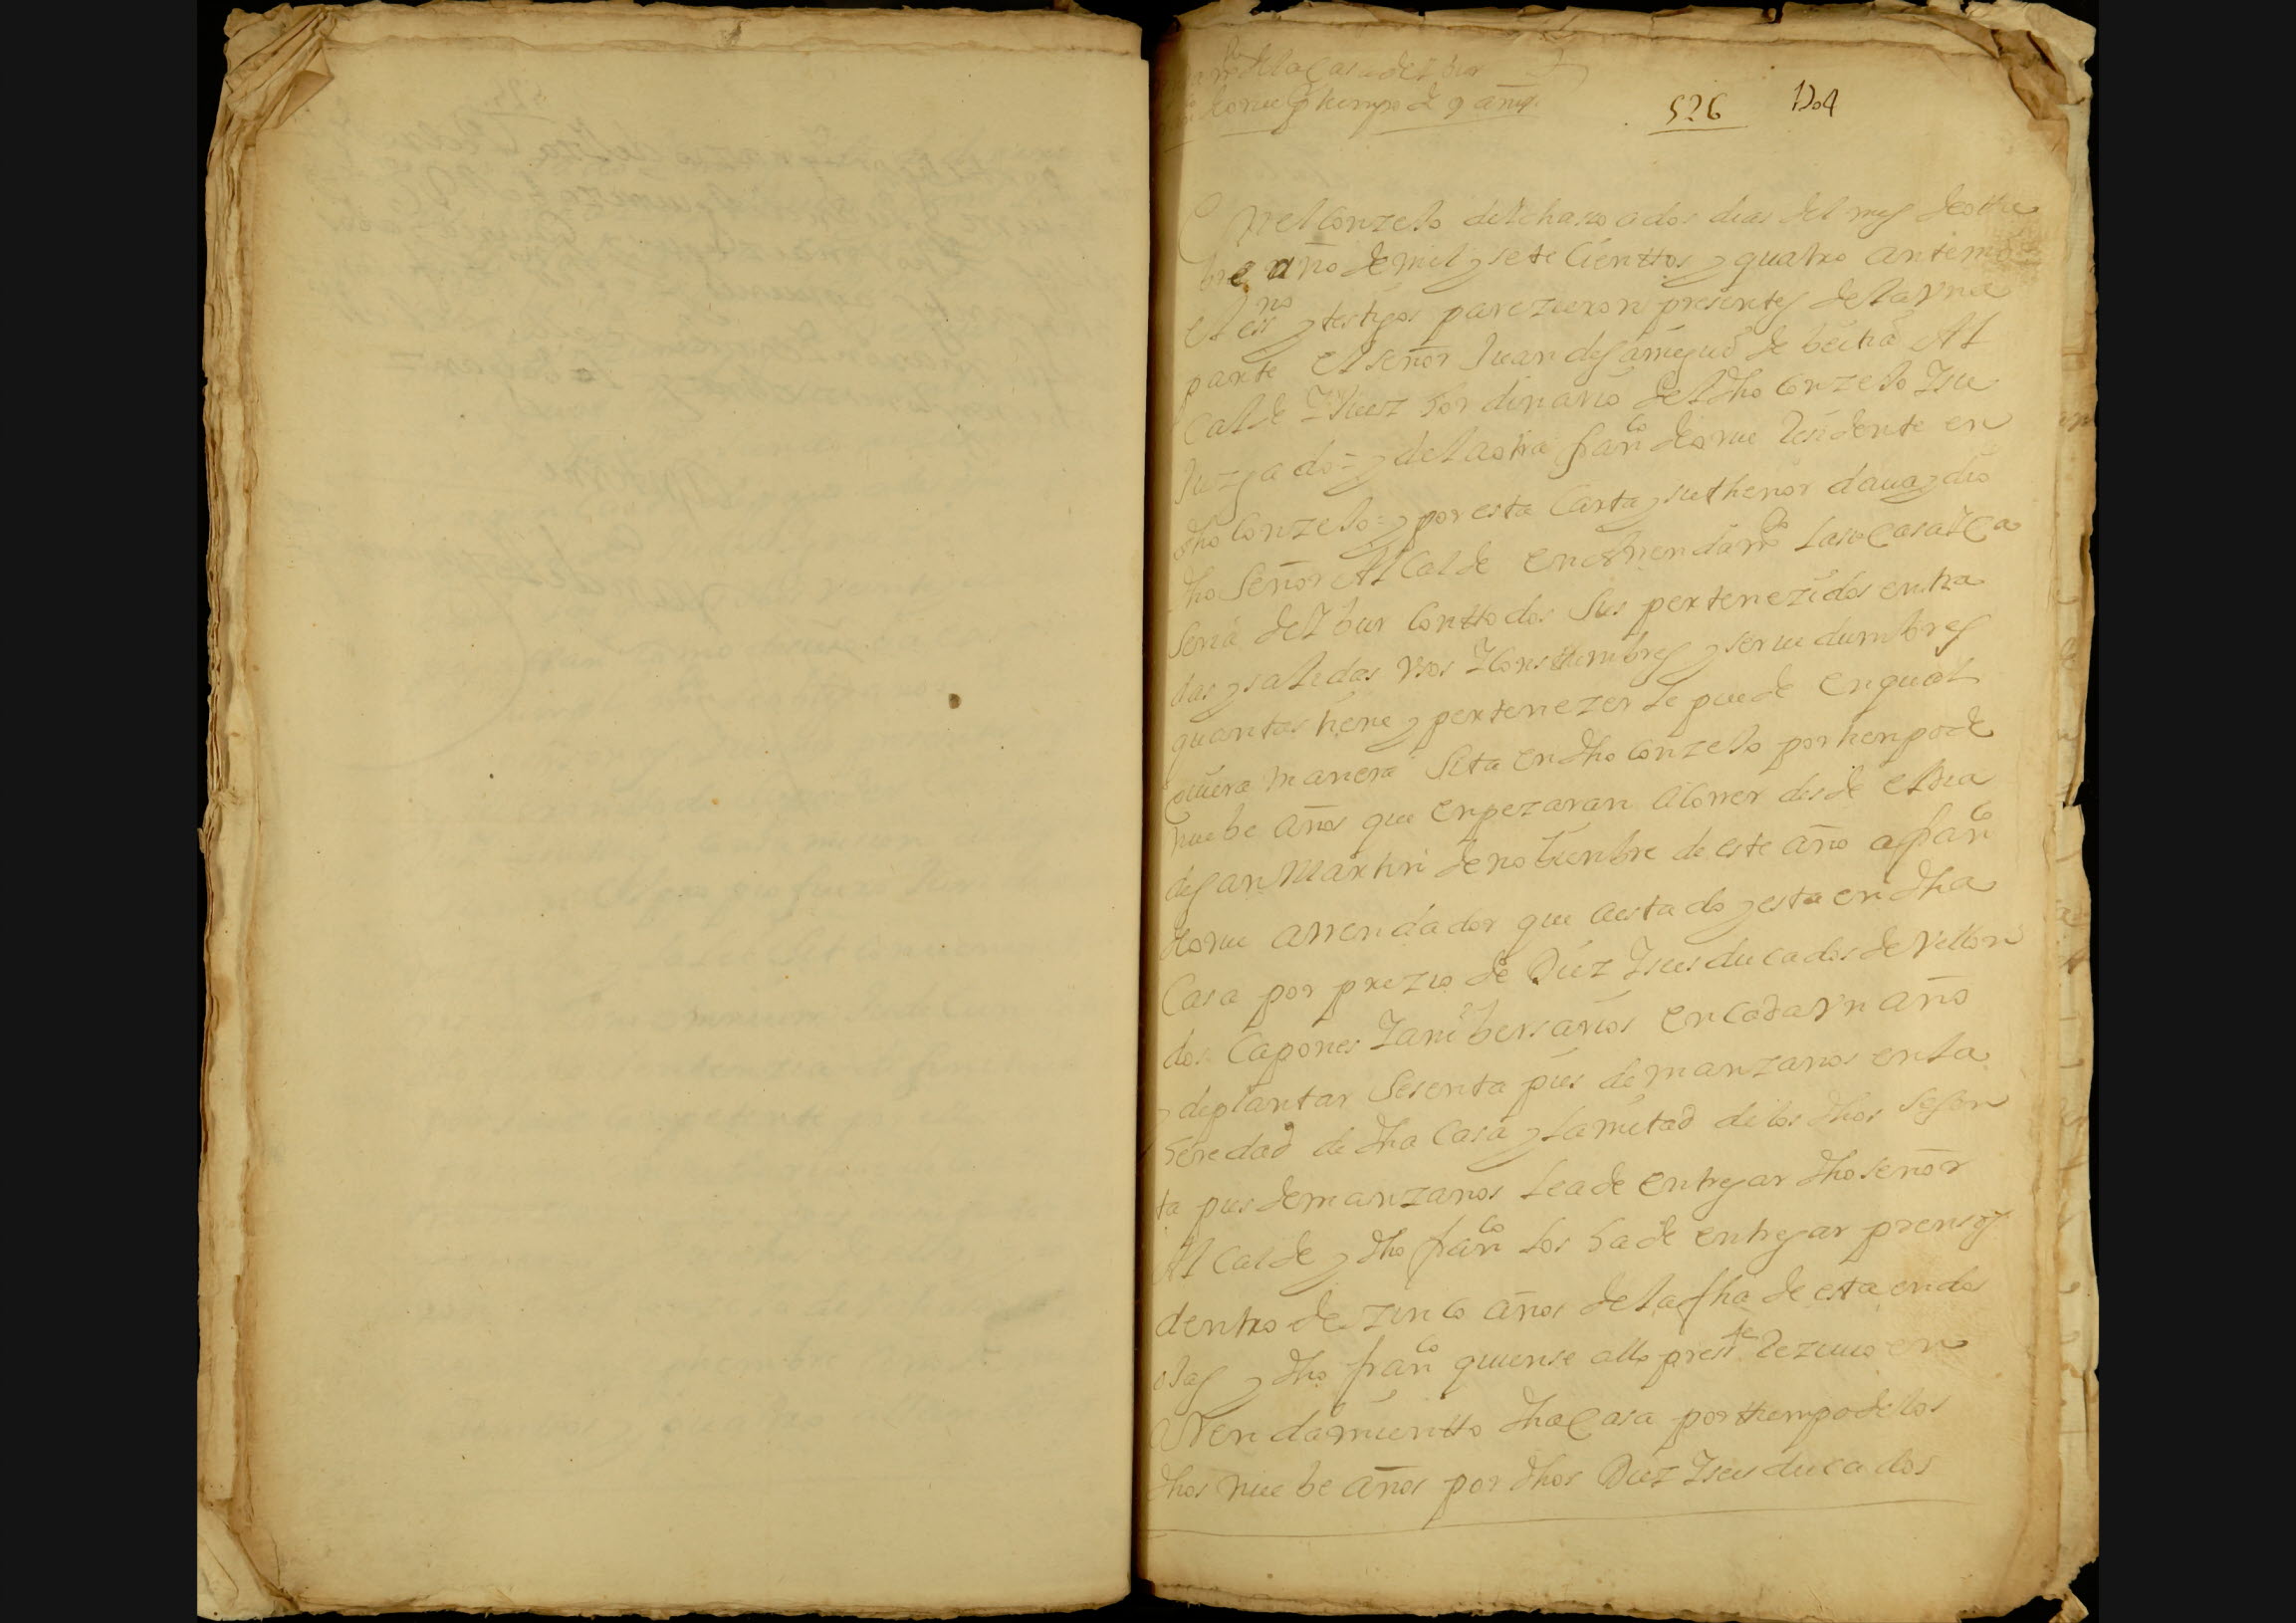 de la Casa de Ibur
de orue por tiempo de 9 años
526 1704
En el Conzejo de Lezama a dos dias del mes de otu
bre año de mil y sete Cienttos y quatro ante mi
el essno y testigos parezieron presentes de la vna
parte el señor Juan de de beitia Al
Calde y Juez hordinario del dho Conzejo y su
Juzgado = y de la otra franco de orue Residente en
dho Conzejo = y por esta Carta y su thenor daua y dio
dho Señor Al Calde en arrendamto la su Casa y Ca
seria de Ibur Con ttodos sus pertenezidos entra
das y salidas vsos y Consttumbres y seruidumbres
quantas tiene y pertenezer le puede en qual
quiera manera sita en dho Conzejo por tienpo de
nuebe años que enpezaran a Correr desde el dia
de san Martin de nobienbre de este año a franco
de orue arrendador que a estado y esta en dha
Casa por prezio de Diez y seis ducados de vellon
dos Capones y anibersarios en cada vn año
y de plantar sesenta pies de manzanos en la
heredad de dha Casa y la mitad de los dhos sesen
ta pies de manzanos le a de entregar dho señor
Al Calde y dho franco los ha de entregar presos
dentro de zinco años de la fha de esta en dos
ojas y dho franco quien se allo preste Reziuio en
arrendamientto dha Casa por ttiempo de los
dhos nuebe años por dhos Diez y seis ducados